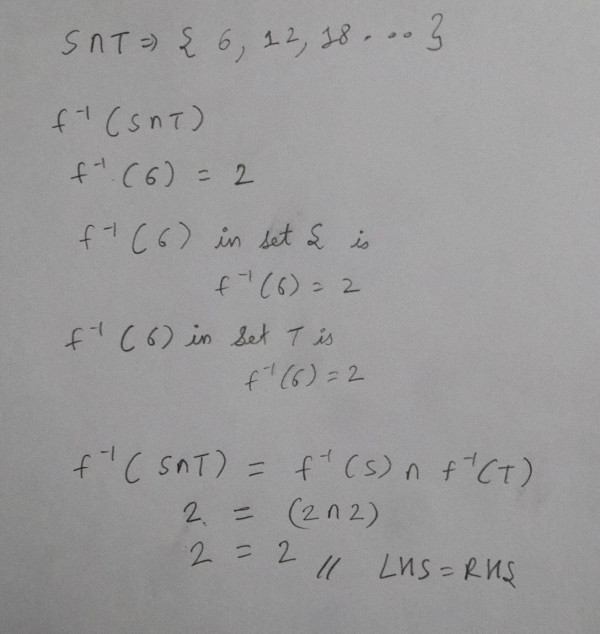 S∩T ⇒ { 6, 12, 18 . . . }
f⁻¹ (S∩T)
f⁻¹ (6) = 2
f⁻¹ (6) in set S is
f⁻¹ (6) = 2
f⁻¹ (6) in set T is
f⁻¹ (6) = 2
f⁻¹ ( S∩T) = f⁻¹ (S) ∩ f⁻¹(T)
2 = (2∩2)
2 = 2 // LHS = RHS